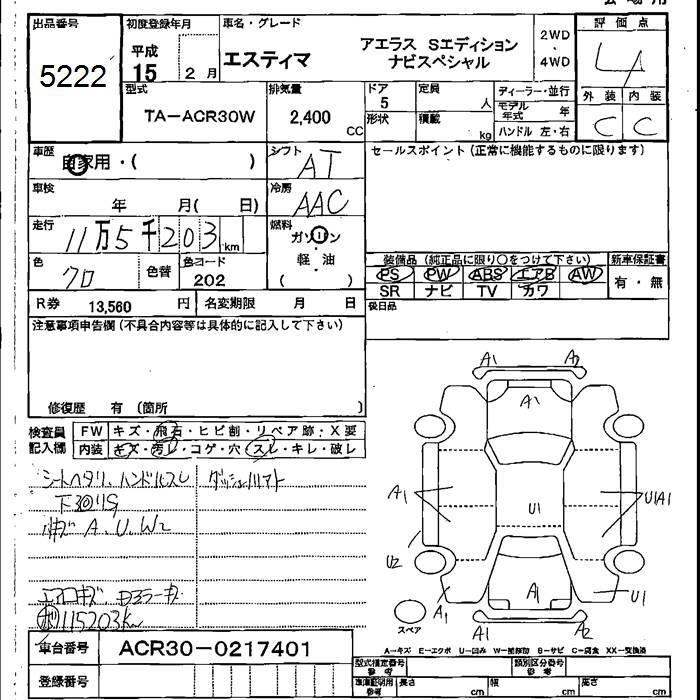 出品番号
5222
初度登録年月
平成
15 2 月
車名・グレード
エスティマ
アエラス Sエディション
ナビスペシャル
2WD
・
4WD
評価点
4
外装 内装
C C
型式
TA-ACR30W
排気量
2,400
CC
ドア
5
定員
人
形状
積載
kg
ディーラー・並行
モデル
年式 年
ハンドル 左・右
車歴
自家用・( )
シフト
AT
セールスポイント(正常に機能するものに限ります)
車検
年 月( 日)
冷房
AAC
走行
11万5千203km
燃料
ガソリン
軽・油
( )
色
クロ
色替
色コード
202
装備品(純正品に限り○をつけて下さい)
新車保証書
PS PW ABS エアB AW
SR ナビ TV カワ
有・無
R券 13,560 円
名変期限 月 日
後日品
注意事項申告欄(不具合内容等は具体的に記入して下さい)
修復歴 有 (箇所 )
検査員
記入欄
FW キズ・飛石・ヒビ割・リペア跡・X要
内装 キズ・汚レ・コゲ・穴・スレ・キレ・破レ
シートヘタリ、ハンドルスレ
ダッシュ
下回りS
小キズ A、U、W2
エアロキズ
115203km
A1 A2
A1
A1
U1
U1A1
U2
A1
A1
U1
スペア
A1 U2
A-キズ E-エクボ U-凹み W-補修跡 S-サビ C-腐食 XX-交換済
車台番号
ACR30-0217401
登録番号
型式指定番号
参考
類別区分番号
参考
車庫証明用
参考
長さ cm
幅 cm
高さ cm